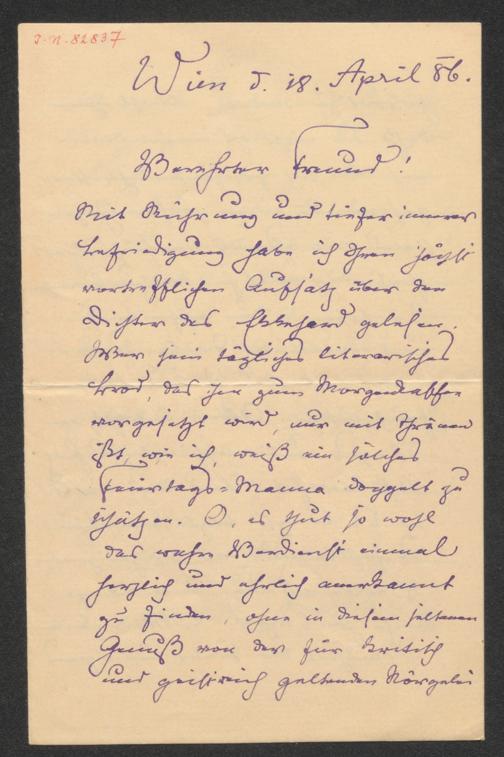 I.N. 82837
Wien d. 18. April 86.
Verehrter Freund!
Mit Rührung und tiefer innerer
Befriedigung habe ich Ihren höchst
vortrefflichen Aufsatz über den
Dichter des Ekkehard gelesen.
Wer sein tägliches literarisches
Brod, das ihm zum Morgenkaffee
vorgesetzt wird, nur mit Thränen
ißt, wie ich, weiß ein solches
Feiertags-Manna doppelt zu
schätzen. O, es thut so wohl
das wahre Verdienst einmal
herzlich und ehrlich anerkannt
zu finden, ohne in diesem seltenen
Genuß von der für kritisch
und geistreich geltenden Nörgelei